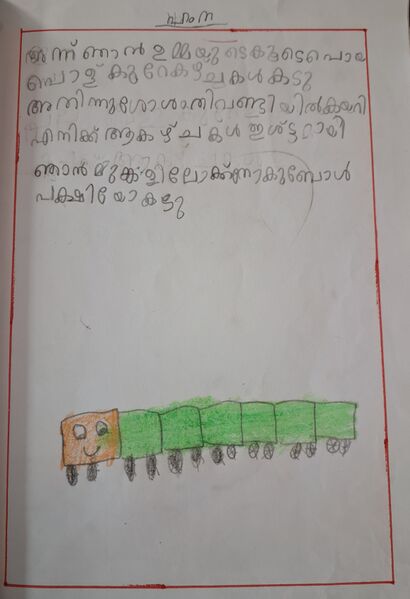 ഹംന
അന്ന് ഞാൻ ഉമ്മയുടെകൂടെപൊയ
പൊള് കുറേകഴ്ചകൾകടു
അതിന്നുശോൾ തിവണ്ടിയിൽകയറി
എനിക്ക് ആകഴ്ചകൾ ഇശ്ട്ടമായി
ഞാൻ മുക്കളിലോക്ക്നോകുബോൾ
പക്ഷിയോകളു